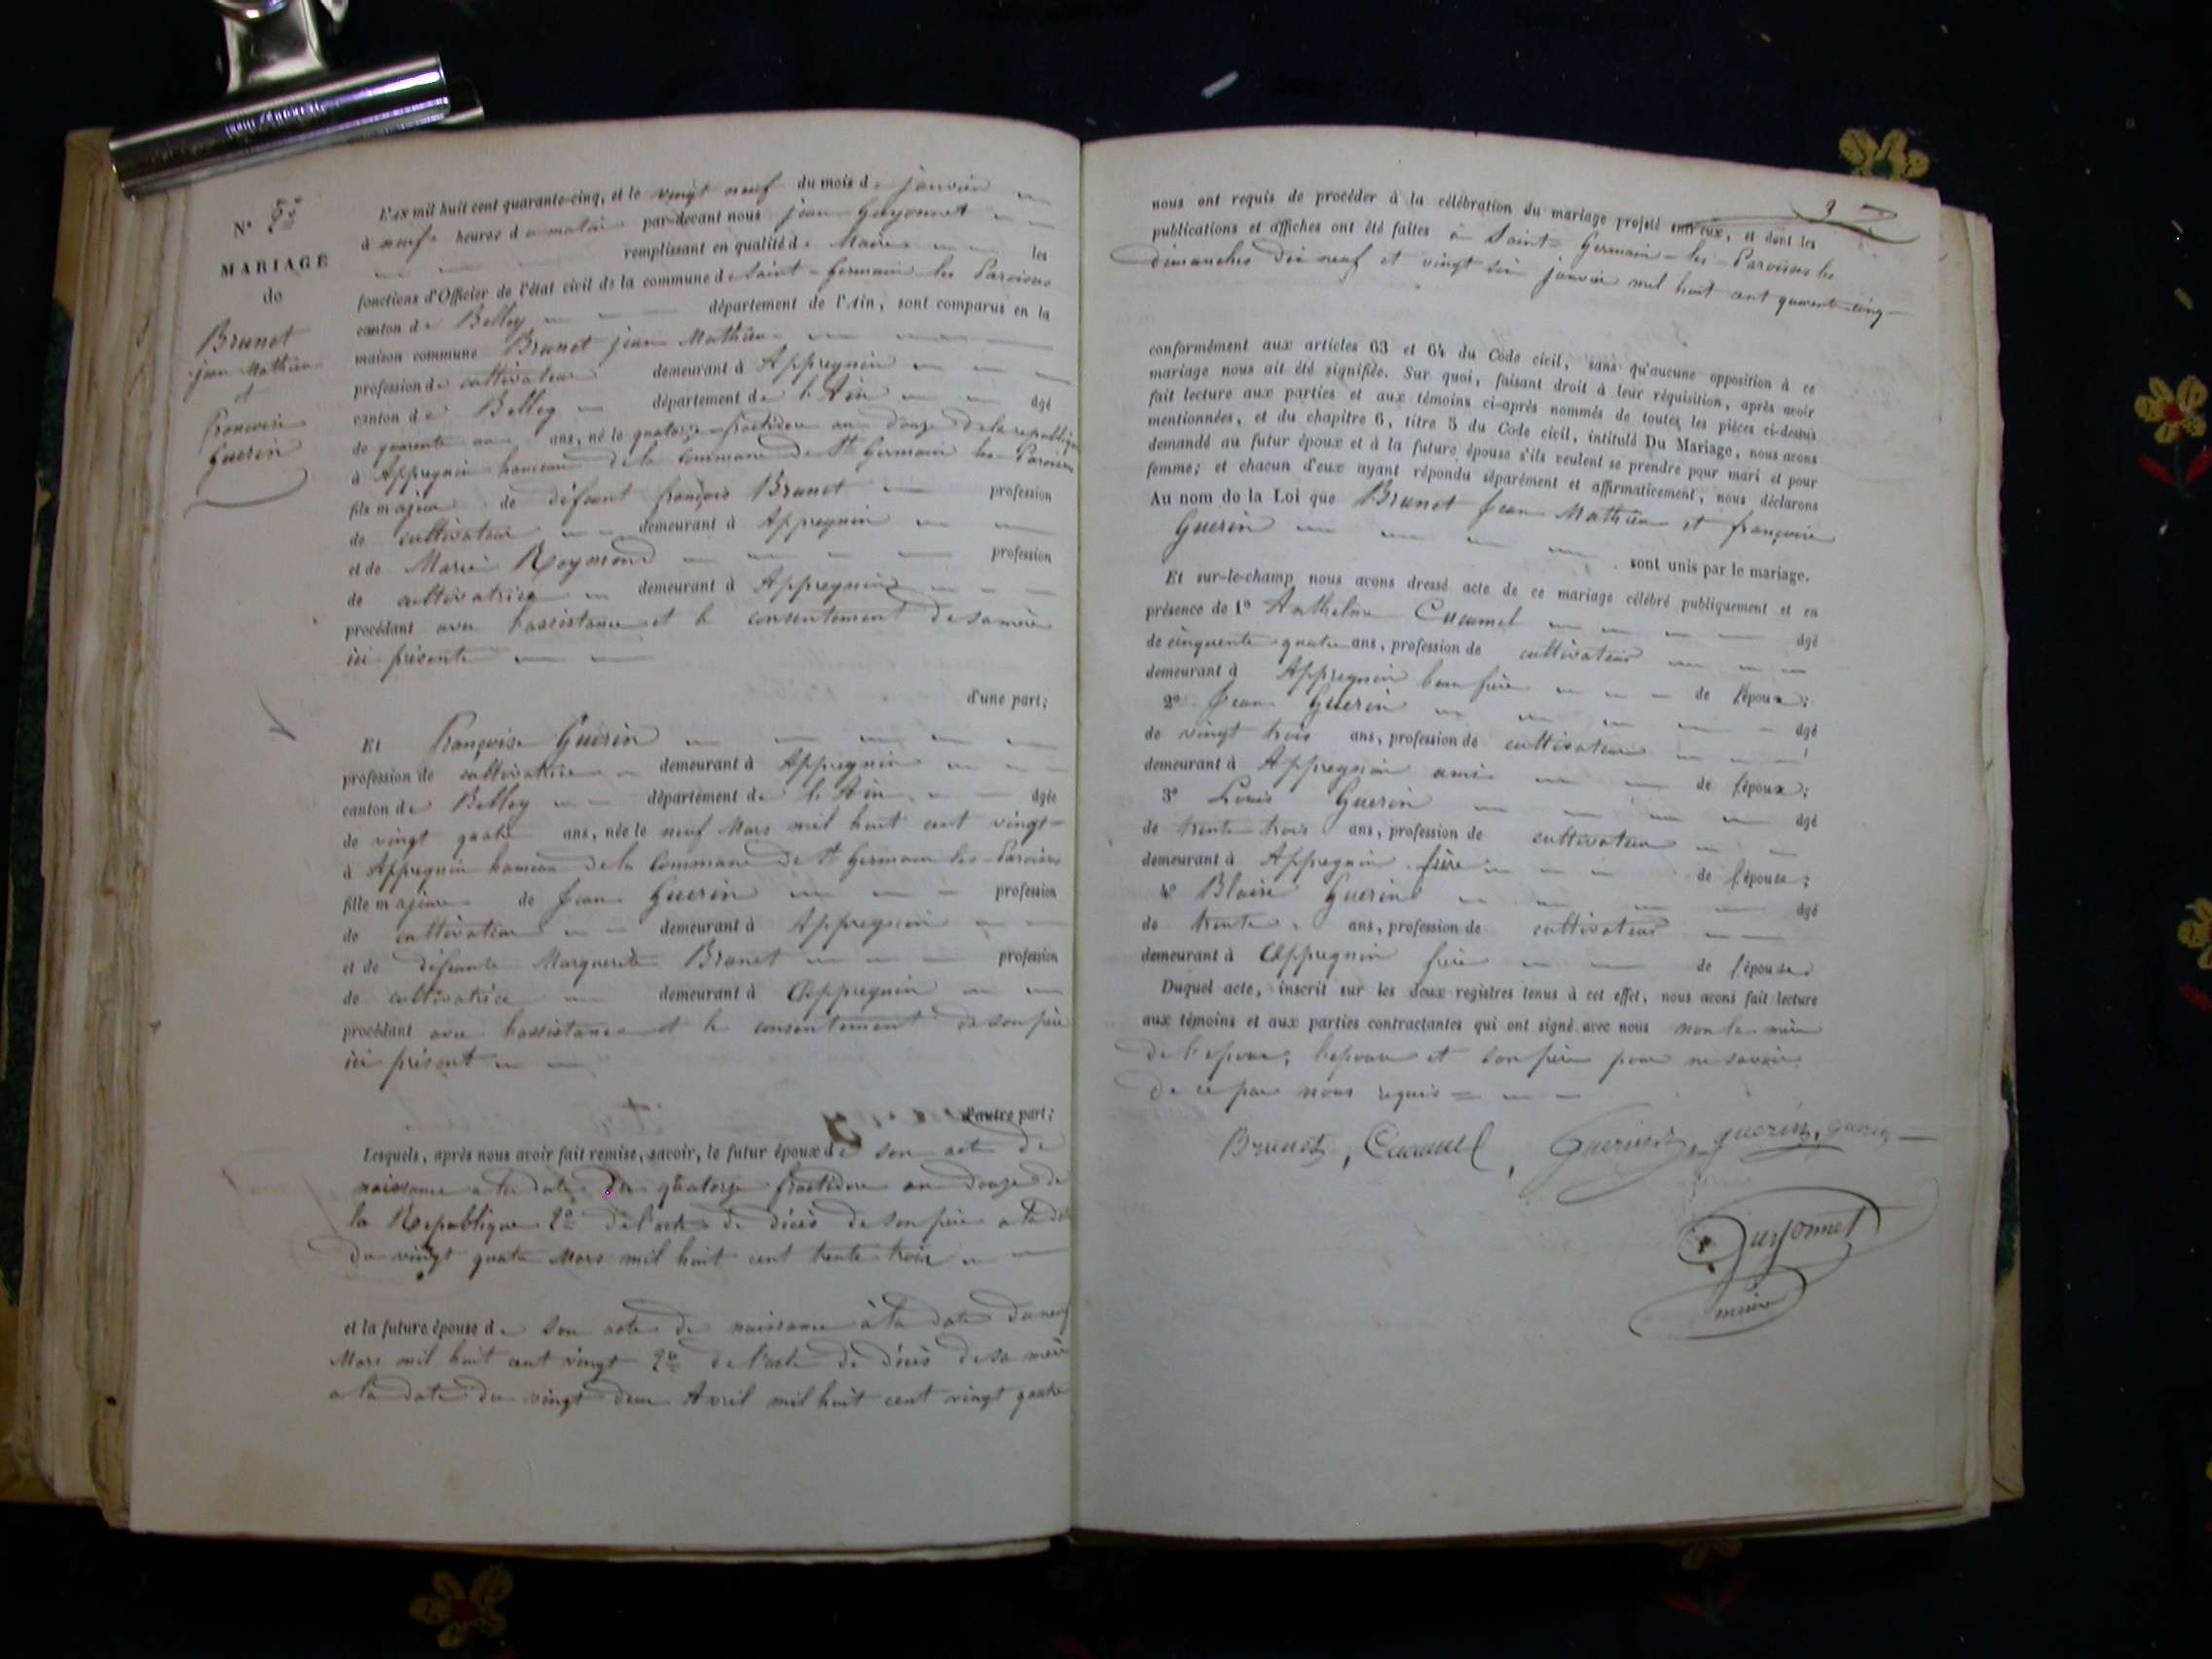 N° 2e
MARIAGE
de
Brunet
jean Mathieu
et
françoise
Guerin
L'AN mil huit cent quarante-cinq, et le vingt neuf du mois de janvier
à neuf heures du matin par-devant nous jean Guyonnet
remplissant en qualité de Maire les
fonctions d'Officier de l'état civil de la commune de Saint-Germain les Paroisses
canton de Belley département de l'Ain, sont comparus en la
maison commune Brunet jean Mathieu
profession de cultivateur demeurant à Appregnin
canton de Belley département de l'Ain âgé
de quarante un ans, né le quatorze fructidore an douze de la republique
à Appregnin hameau de la Commune de St Germain les Paroisses
fils majeur de défunt françois Brunet profession
de cultivateur demeurant à Appregnin
et de Marie Reymond profession
de cultivatrice demeurant à Appregnin
procédant avec l'assistance et le consentement de sa mère
ici présente
d'une part;
Et Françoise Guérin
profession de cultivatrice demeurant à Appregnin
canton de Belley département de l'Ain âgée
de vingt quatre ans, née le neuf Mars mil huit cent vingt
à Appregnin hameau de la Commune de St Germain les Paroisses
fille majeure de Jean Guerin profession
de cultivateur demeurant à Appregnin
et de défunte Marguerite Brunet profession
de cultivatrice demeurant à Appregnin
procédant avec l'assistance et le consentement de son père
ici présent
d'autre part;
Lesquels, après nous avoir fait remise, savoir, le futur époux de son acte de
naissance a la date du quatorze fructidore an douze de
la Republique 2° de l'acte de décès de son père a la date
du vingt quatre Mars mil huit cent trente trois
et la future épouse de son acte de naissance à la date du neuf
Mars mil huit cent vingt 2° de l'acte de décès de sa mère
a la date du vingt deux Avril mil huit cent vingt quatre
3
nous ont requis de procéder à la célébration du mariage projeté entr'eux, et dont les
publications et affiches ont été faites à Saint-Germain-les-Paroisses les
dimanches dix neuf et vingt six janvier mil huit cent quarente-cinq
conformément aux articles 63 et 64 du Code civil, sans qu'aucune opposition à ce
mariage nous ait été signifiée. Sur quoi, faisant droit à leur réquisition, après avoir
fait lecture aux parties et aux témoins ci-après nommés de toutes les pièces ci-dessus
mentionnées, et du chapitre 6, titre 5 du Code civil, intitulé Du Mariage, nous avons
demandé au futur époux et à la future épouse s'ils veulent se prendre pour mari et pour
femme; et chacun d'eux ayant répondu séparément et affirmativement, nous déclarons
Au nom de la Loi que Brunet Jean Mathieu et françoise
Guerin
sont unis par le mariage.
Et sur-le-champ nous avons dressé acte de ce mariage célébré publiquement et en
présence de 1° Anthelme Cucumel âgé
de cinquente quatre ans, profession de cultivateur
demeurant à Appregnin beau frère de l'époux;
2° Jean Guerin âgé
de vingt trois ans, profession de cultivateur
demeurant à Appregnin ami de l'époux;
3° Louis Guerin âgé
de trente trois ans, profession de cultivateur
demeurant à Appregnin frère de l'épouse;
4° Blaise Guerin âgé
de trente ans, profession de cultivateur
demeurant à Appregnin frère de l'épouse.
Duquel acte, inscrit sur les deux registres tenus à cet effet, nous avons fait lecture
aux témoins et aux parties contractantes qui ont signé avec nous non la mère
de l'epoux, l'epouse et son père pour ne savoir
de ce par nous requis
Brunet, Cucumel, Guerin, guerin, guerin
Guyonnet
maire